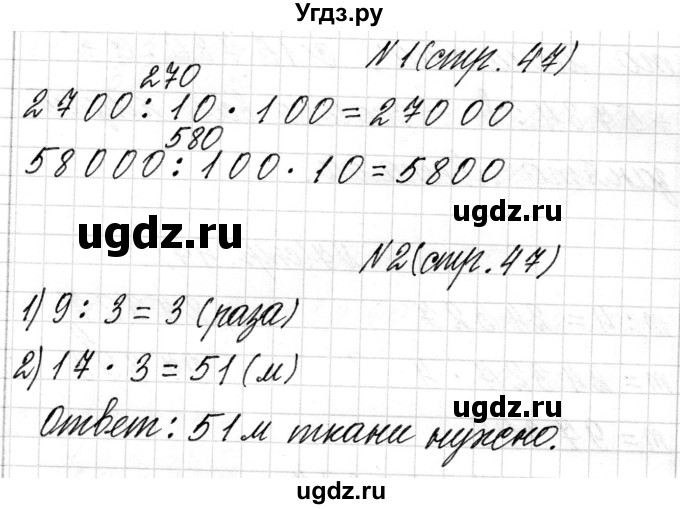 Угдз.ру
№1(стр. 47)
270
2700 : 10 · 100 = 27000
580
58000 : 100 · 10 = 5800
ugdz.ru
ugdz.ru
№2(стр. 47)
1) 9 : 3 = 3 (раза)
2) 17 · 3 = 51 (м)
ugdz.ru
ugdz.ru
Ответ: 51 м ткани нужно.
ugdz.ru
ugdz.ru